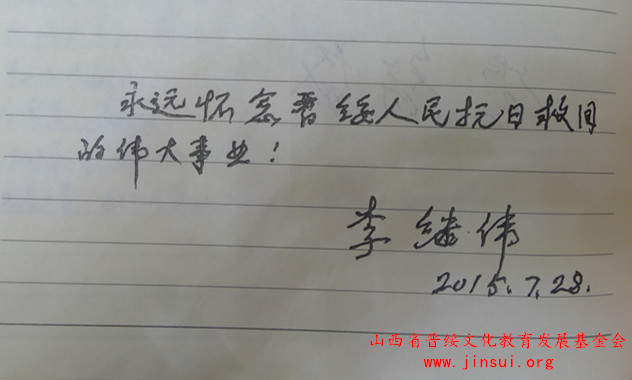 永远怀念晋绥人民抗日救国
的伟大事业！
李继伟
2015.7.28.
山西省晋绥文化教育发展基金会
www.jinsui.org